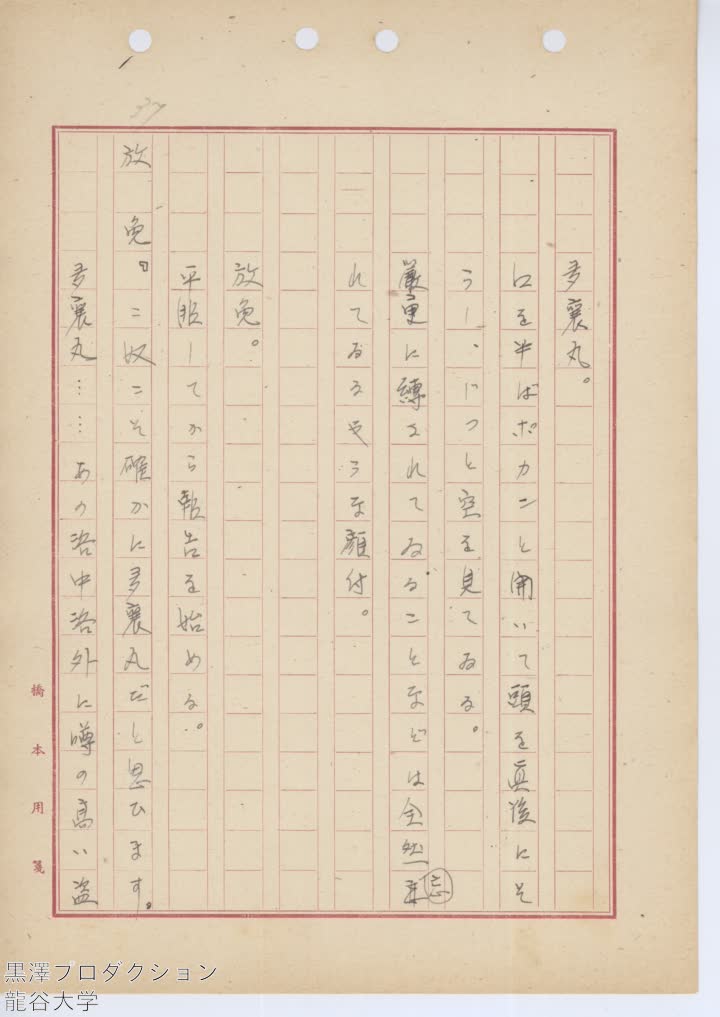 多襄丸。
口を半ばポカンと開いて頭を真後にそ
らし、じつと空を見てゐる。
厳重に縛されてゐることなどは全然忘
れてゐるやうな顔付。
放免。
平服してから報告を始める。
放免『こ奴こそ確かに多襄丸だと思ひます。
多襄丸……あの洛中洛外に噂の高い盗
37
橋本用箋
黒澤プロダクション
龍谷大学